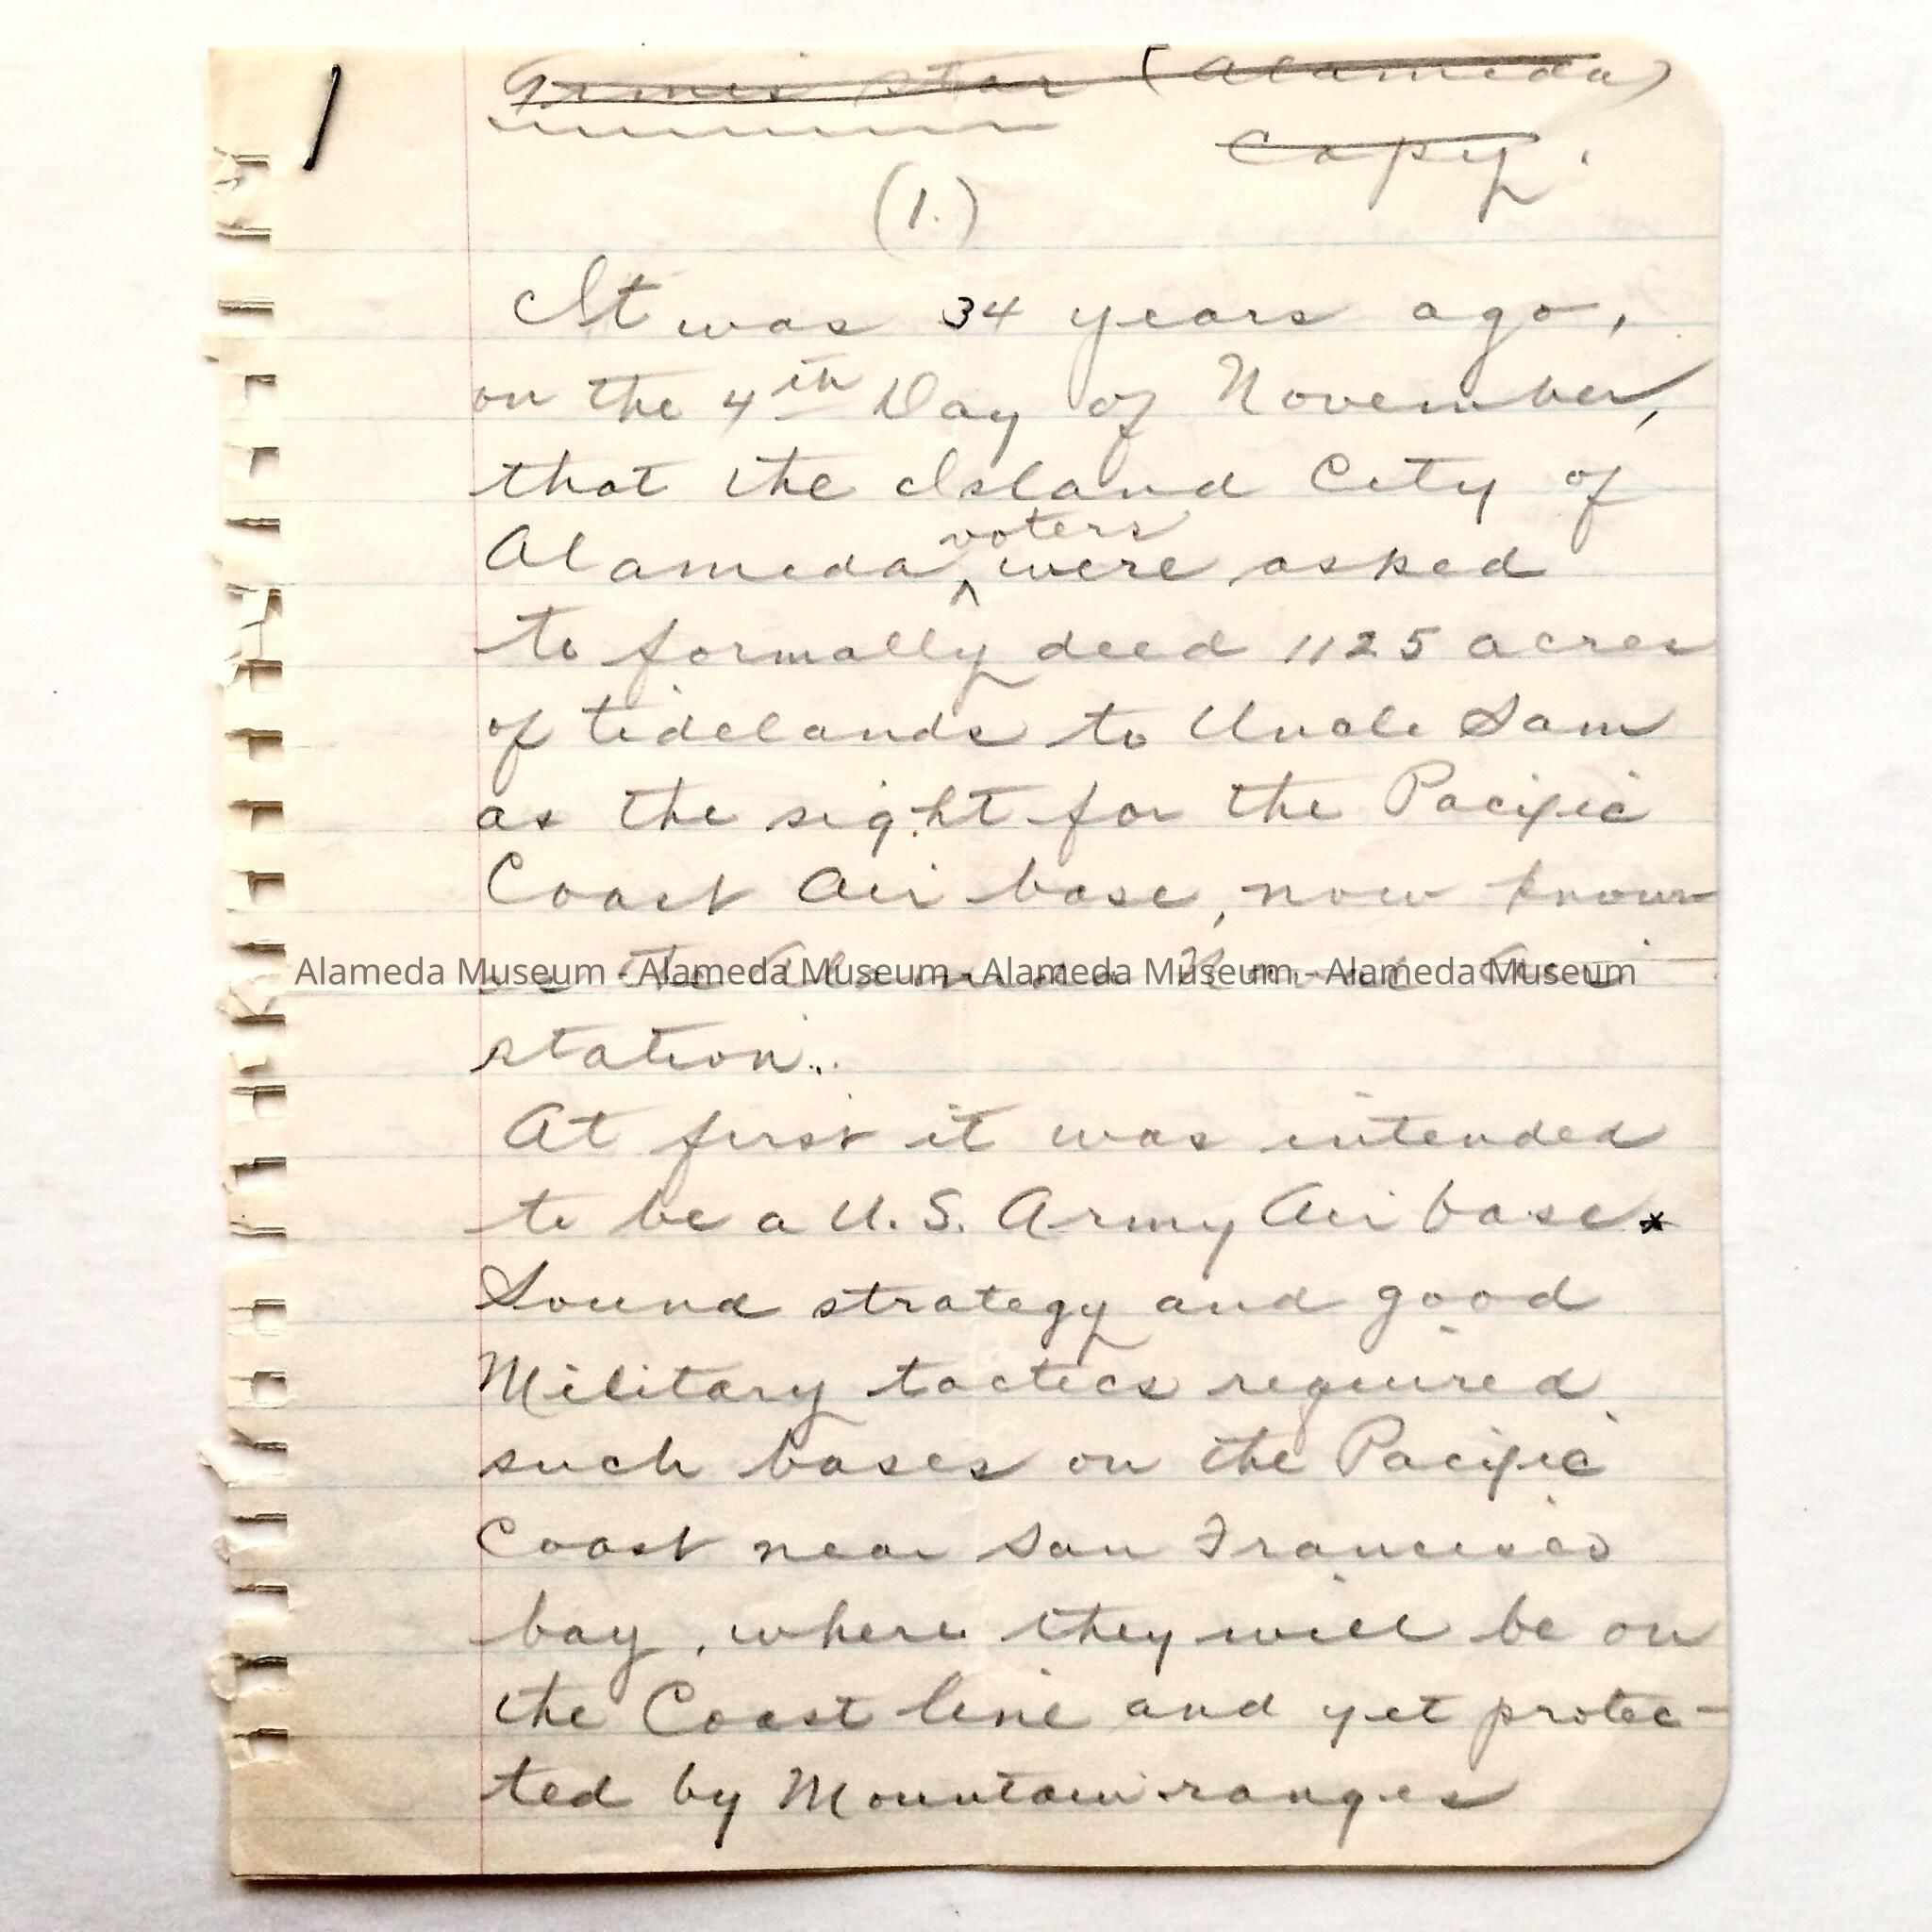 Times Star (Alameda)
Copy.
(1.)
It was 34 years ago,
on the 4th Day of November,
that the Island City of
Alameda voters were asked
to formally deed 1125 acres
of tidelands to Uncle Sam
as the sight for the Pacific
Coast Air base, now known
as the Alameda Naval Air
Alameda Museum - Alameda Museum - Alameda Museum - Alameda Museum
station..
At first it was intended
to be a U.S. Army Air base*
Sound strategy and good
Military tactics required
such bases on the Pacific
Coast near San Francisco
bay, where they will be on
the Coast line and yet protec-
ted by Mountain ranges